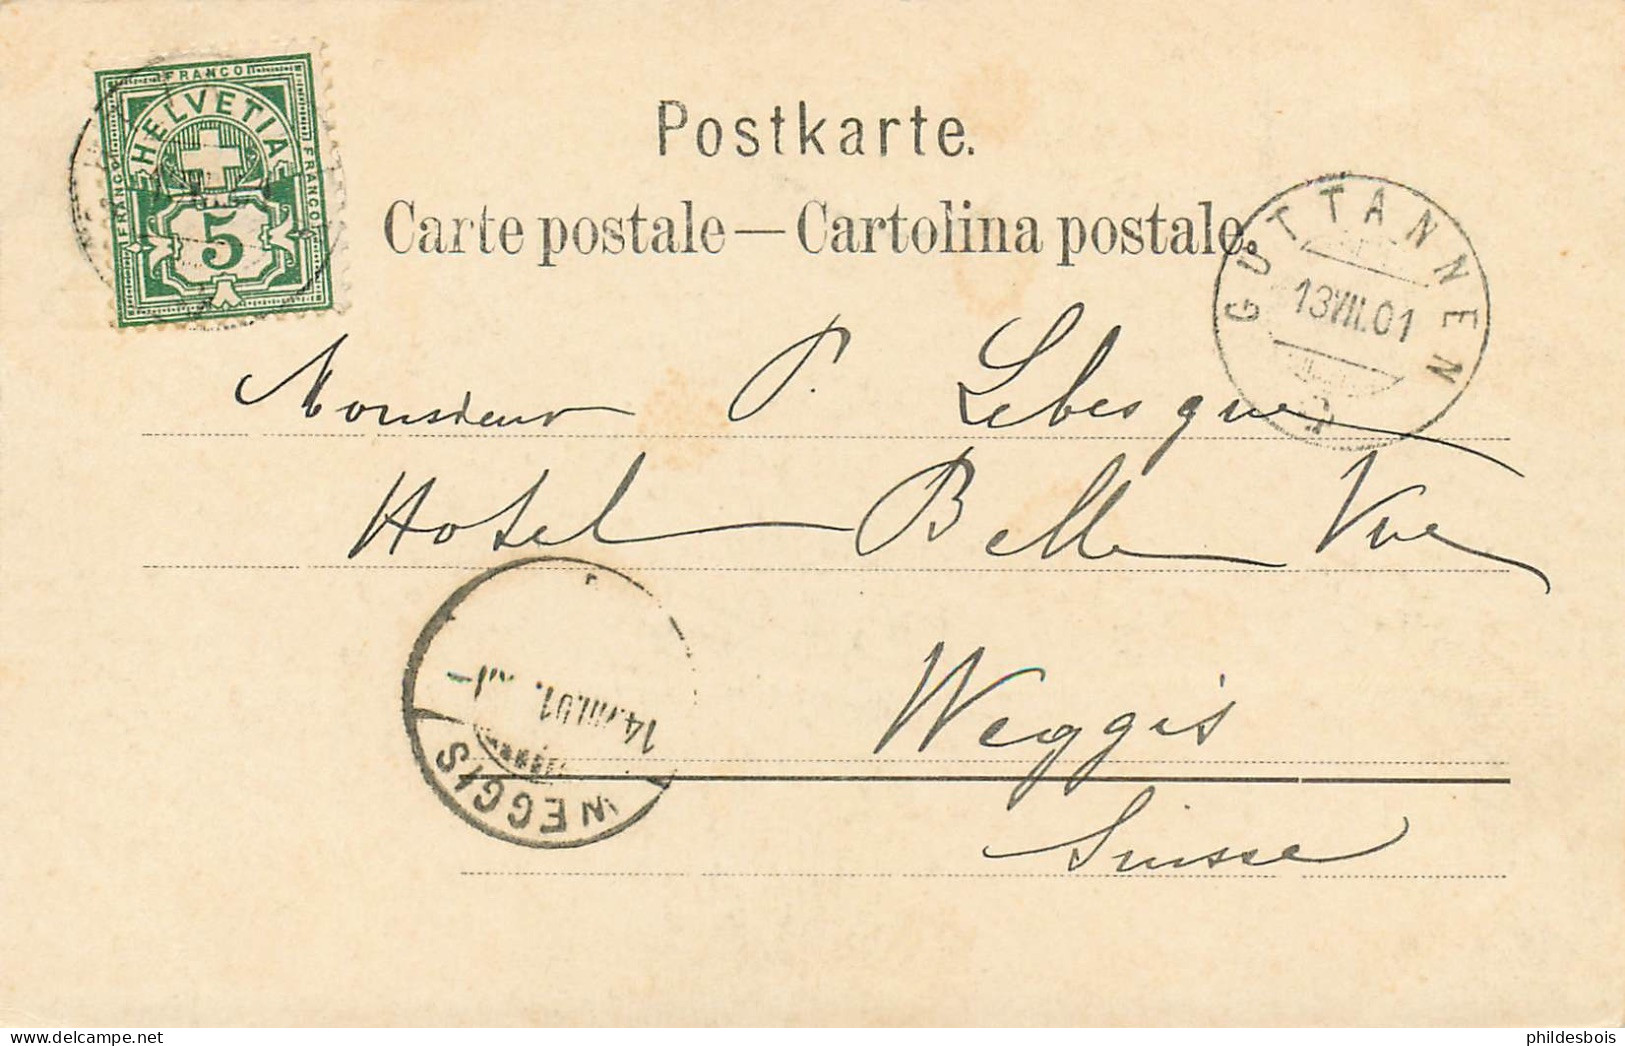 FRANCO
HELVETIA
FRANCO
FRANCO
5
Postkarte.
Carte postale — Cartolina postale.
GUTTANNEN
13.VII.01
Monsieur P. Lebesgue
Hotel Belle Vue
Weggis
Suisse
14.VIII.01.
WEGGIS
phildesbois